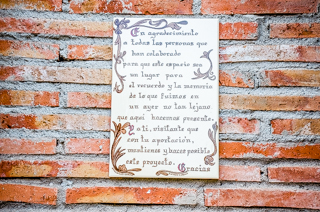 En agradecimiento
a todas las personas que
han colaborado
para que este espacio sea
un lugar para
el recuerdo y la memoria
de lo que fuimos en
un ayer no tan lejano
que aquí hacemos presente.
Y a ti, visitante que
con tu aportación,
mantienes y haces posible
este proyecto. Gracias